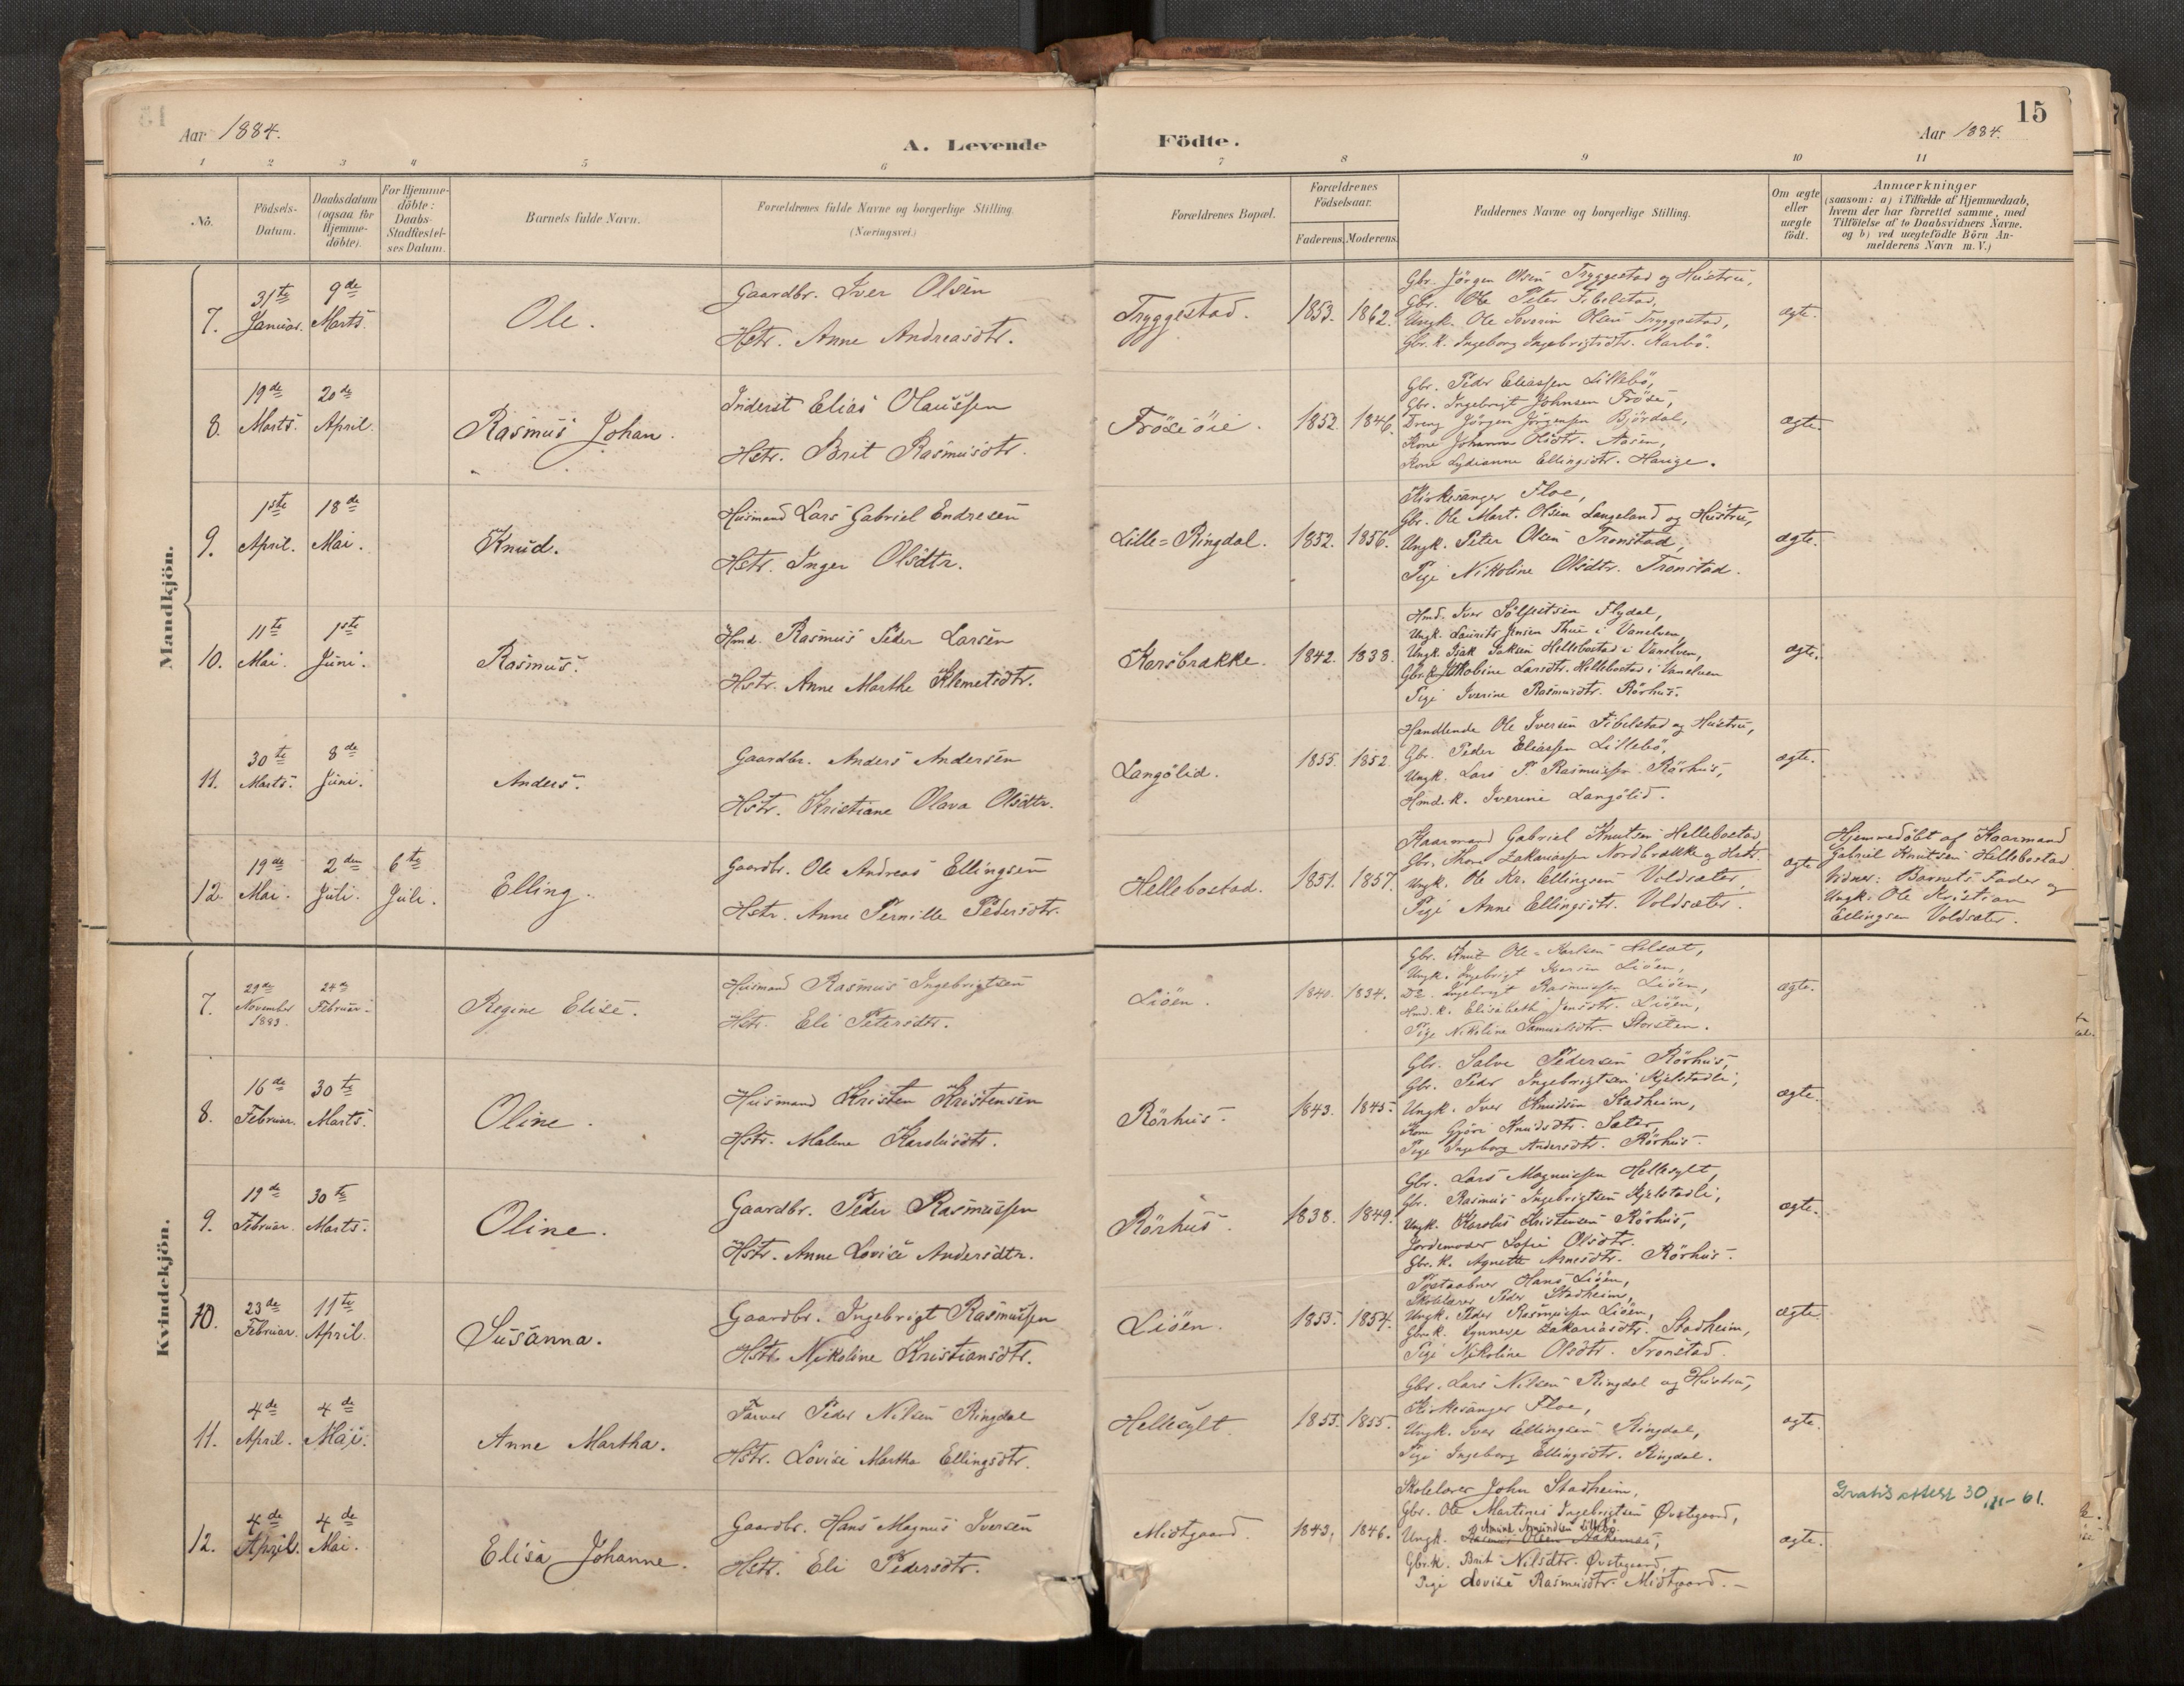 15
Aar 1884.
A. Levende
Födte.
Aar 1884.
1 2 3 4 5 6 7 8 9 10 11
No.
Födsels-
Datum.
Daabsdatum
(ogsaa for
Hjemme-
döbte).
For Hjemme-
döbte:
Daabs-
Stadfæstel-
ses Datum.
Barnets fulde Navn.
Forældrenes fulde Navne og borgerlige Stilling.
(Næringsvei.)
Forældrenes Bopæl.
Forældrenes
Födselsaar.
Faderens. Moderens.
Faddernes Navne og borgerlige Stilling.
Om ægte
eller
uægte
födt.
Anmærkninger
(saasom: a) i Tilfælde af Hjemmedaab,
hvem der har forrettet samme, med
Tilföielse af to Daabsvidners Navne.
og b) ved uægtefödte Börn An-
melderens Navn m. V.)
Mandkjön.
7.
31te
Januar.
9de
Marts.
Ole.
Gaardbr. Iver Olsen
Hstr. Anne Andreasdtr.
Tryggestad.
1853. 1862.
Gbr. Jörgen Olsen Tryggestad og Hustru,
Gbr. Ole Peter Fibelstad,
Ungk. Ole Severin Olsen Tryggestad,
Gbr. K. Ingeborg Ingebrigtsdtr. Karbö.
ægte.
8.
19de
Marts.
20de
April.
Rasmus Johan.
Inderst Elias Olaussen
Hstr. Brit Rasmusdtr.
Fröseöie.
1852. 1846.
Gbr. Peder Eliassen Lillebö,
Gbr. Ingebrigt Johnsen Fröse,
Dreng Jörgen Jörgensen Björdal,
Kone Johanne Olsdtr. Aasen,
Kone Lydianne Ellingsdtr. Hauge.
ægte.
9.
1ste
April.
18de
Mai.
Knud.
Husmand Lars Gabriel Endresen
Hstr. Inger Olsdtr.
Lille=Ringdal.
1852. 1856.
Kirkesanger Floe,
Gbr. Ole Mart. Olsen Langeland og Hustru,
Ungk. Peter Olsen Tronstad,
Pige Nikoline Olsdtr. Tronstad.
ægte.
10.
11te
Mai.
1ste
Juni.
Rasmus.
Hmd. Rasmus Peder Larsen
Hstr. Anne Marthe Klemetsdtr.
Korsbrække.
1842. 1838.
Hmd. Iver Sölfestsen Flydal,
Ungk. Laurits Jensen Thue i Vanelven,
Ungk. Isak Saksen Hellebostad i Vanelven,
Gbr. K. Jakobine Larsdtr. Hellebostad i Vanelven
Pige Iverine Rasmusdtr. Rörhus.
ægte.
11.
30te
Marts.
8de
Juni.
Anders.
Gaardbr. Anders Andersen
Hstr. Kristiane Olava Olsdtr.
Langölid.
1855. 1852.
Handlende Ole Iversen Fibelstad og Hustru,
Gbr. Peder Eliassen Lillebö,
Ungk. Lars P. Rasmussen Rörhus,
Hmd. K. Iverine Langölid.
ægte.
12.
19de
Mai.
2den
Juli.
6te
Juli.
Elling.
Gaardbr. Ole Andreas Ellingsen
Hstr. Anne Pernille Pedersdtr.
Hellebostad.
1851. 1857.
Kaarmand Gabriel Knutsen Hellebostad,
Gbr. Thore Zakariassen Nordbrække og Hstr.
Ungk. Ole Kr. Ellingsen Voldsæter,
Pige Anne Ellingsdtr. Voldsæter.
ægte.
Hjemmedöbt af Kaarmand
Gabriel Knutsen Hellebostad.
Vidner: Barnets Fader og
Ungk. Ole Kristian
Ellingsen Voldsæter.
Kvindekjön.
7.
29de
November
1883.
24de
Februar.
Regine Elise.
Husmand Rasmus Ingebrigtsen
Hstr. Eli Petersdtr.
Liöen.
1840. 1834.
Gbr. Knut Ole-Karlsen Helsæt,
Ungk. Ingebrigt Iversen Liöen,
Do. Ingebrigt Rasmussen Liöen,
Hmd. K. Elisabeth Jensdtr. Liöen,
Pige Nikoline Samuelsdtr. Storsten.
ægte.
8.
16de
Februar.
30te
Marts.
Oline.
Husmand Kristen Kristensen
Hstr. Malene Karolusdtr.
Rörhus.
1843. 1845.
Gbr. Salve Pedersen Rörhus,
Gbr. Peder Ingebrigtsen Kjelstadli,
Ungk. Iver Knudsen Stadheim,
Kone Gjöri Knudsdtr. Sæter,
Pige Ingeborg Andersdtr. Rörhus.
ægte.
9.
19de
Februar.
30te
Marts.
Oline.
Gaardbr. Peder Rasmussen
Hstr. Anne Lovise Andersdtr.
Rörhus.
1838. 1849.
Gbr. Lars Magnussen Hellesylt,
Gbr. Rasmus Ingebrigtsen Kjelstadli,
Ungk. Karolus Kristensen Rörhus,
Jordemoder Sofie Olsdtr.
Gbr. K. Agnette Arnesdtr. Rörhus.
ægte.
10.
23de
Februar.
11te
April.
Susanna.
Gaardbr. Ingebrigt Rasmussen
Hstr. Nikoline Kristiansdtr.
Liöen.
1855. 1854.
Postaabner Hans Liöen,
Skolelærer Peder Stadheim,
Ungk. Peder Rasmussen Liöen,
Gbr. K. Synneve Zakariasdtr. Stadheim,
Pige Nikoline Olsdtr. Tronstad.
ægte.
11.
4de
April.
4de
Mai.
Anne Martha.
Farver Peder Nilsen Ringdal
Hstr. Lovise Martha Ellingsdtr.
Hellesylt.
1855. 1855.
Gbr. Lars Nilsen Ringdal og Hustru,
Kirkesanger Floe,
Ungk. Iver Ellingsen Ringdal,
Pige Ingeborg Ellingsdtr. Ringdal.
ægte.
12.
4de
April.
4de
Mai.
Elisa Johanne.
Gaardbr. Hans Magnus Iversen
Hstr. Eli Pedersdtr.
Midtgaard.
1843. 1846.
Skolelærer John Stadheim,
Gbr. Ole Martines Ingebrigtsen Øvstegaard,
Amund Amundsen Lillebö.
Ungk. Rasmus Olsen
Gbr. K. Brit Nilsdtr. Øvstegaard,
Pige Lovise Rasmusdtr. Midtgaard.
ægte.
Gratis attest 30/11-61.